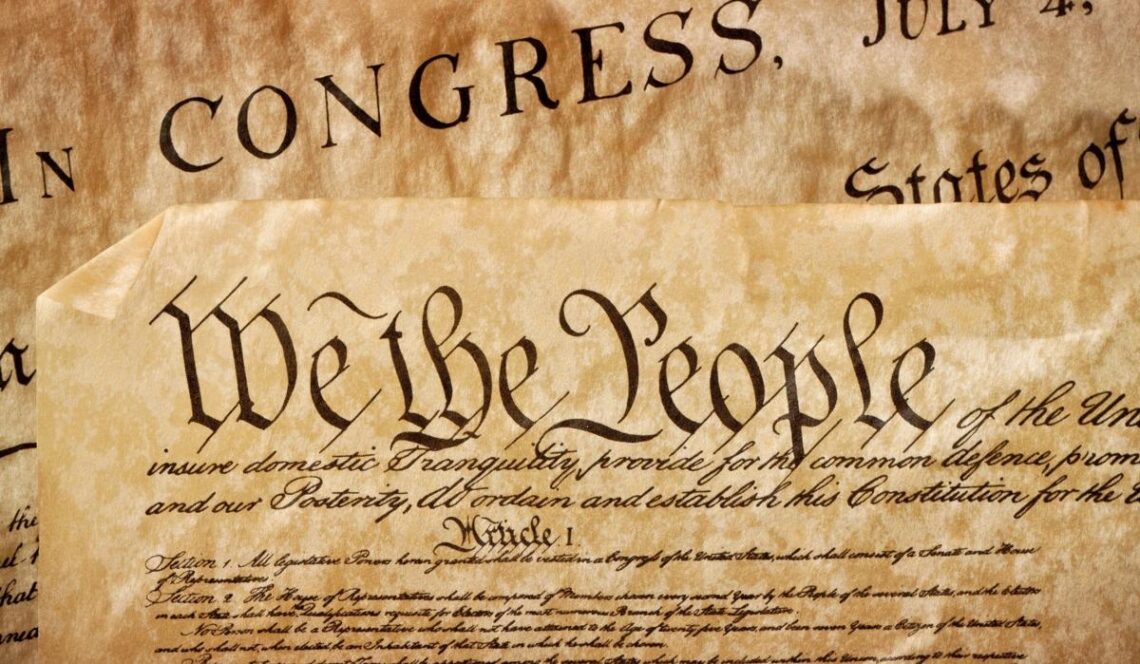 In CONGRESS, JULY 4,
States of
a
We the People of the Un
insure domestic Tranquility, provide for the common defence, prom
and our Posterity, do ordain and establish this Constitution for the
Article I.
the
Section 1. All legislative Powers herein granted shall be vested in a Congress of the United States, which shall consist of a Senate and House
of Representatives
Section 2. The House of Representatives shall be composed of Members chosen every second Year by the People of the several States, and the Electors
that
in each State shall have Qualifications requisite for Electors of the most numerous Branch of the State Legislature.
No Person shall be a Representative who shall not have attained to the Age of twenty five Years, and been seven Years a Citizen of the United States,
and who shall not, when elected be an Inhabitant of that State in which he shall be chosen.
shall be apportioned among the several States which may be included within this Union, according to their respective